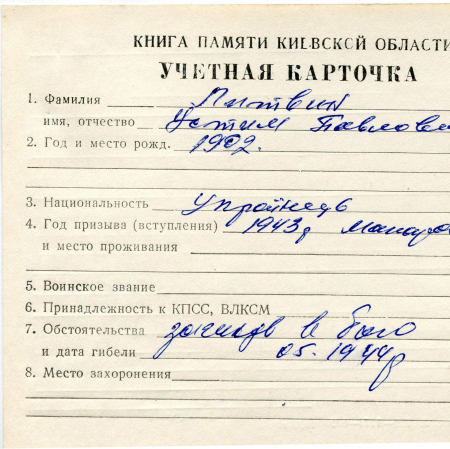 КНИГА ПАМЯТИ КИЕВСКОЙ ОБЛАСТИ
УЧЕТНАЯ КАРТОЧКА
1. Фамилия Литвин
имя, отчество Устим Павлови
2. Год и место рожд. 1902.
3. Национальность Украинець
4. Год призыва (вступления) 1943 г
и место проживания
5. Воинское звание
6. Принадлежность к КПСС, ВЛКСМ
7. Обстоятельства загинув в бою
и дата гибели 05. 1944 г
8. Место захоронения